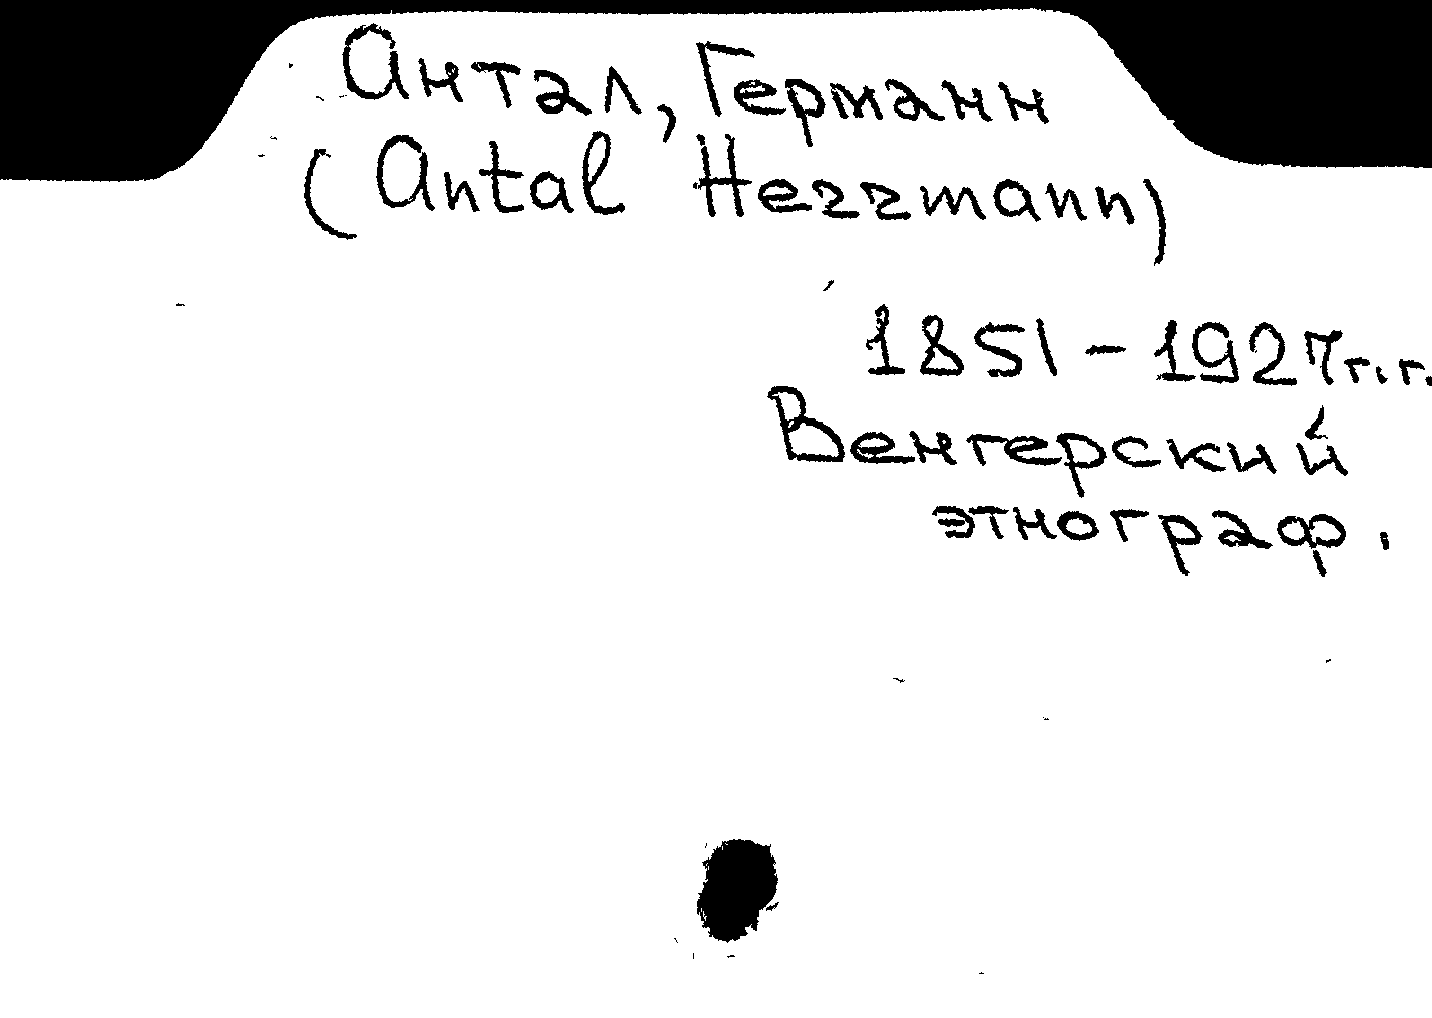 Антал, Германн
(Antal Herrmann)
1851 - 1927 г.г.
Венгерский
этнограф.